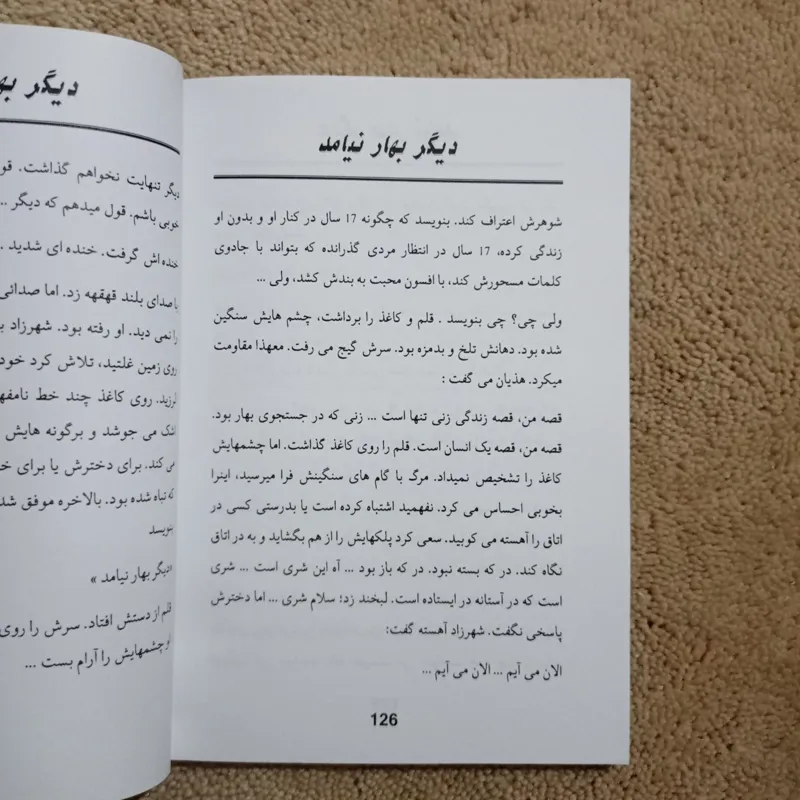 دیگر بهار نیامد
شوهرش اعتراف کند. بنویسد که چگونه 17 سال در کنار او و بدون او
زندگی کرده، 17 سال در انتظار مردی گذرانده که بتواند با جادوی
کلمات مسحورش کند، با افسون محبت به بندش کشد، ولی ...
ولی چی؟ چی بنویسد . قلم و کاغذ را برداشت، چشم هایش سنگین
شده بود. دهانش تلخ و بدمزه بود. سرش گیج می رفت. معهذا مقاومت
میکرد. هذیان می گفت :
قصه من، قصه زندگی زنی تنها است ... زنی که در جستجوی بهار بود.
قصه من، قصه یک انسان است. قلم را روی کاغذ گذاشت. اما چشمهایش
کاغذ را تشخیص نمیداد. مرگ با گام های سنگینش فرا میرسید، اینرا
بخوبی احساس می کرد. نفهمید اشتباه کرده است یا بدرستی کسی در
اتاق را آهسته می کوبید. سعی کرد پلکهایش را از هم بگشاید و به در اتاق
نگاه کند. در که بسته نبود. در که باز بود ... آه این شری است ... شری
است که در آستانه در ایستاده است. لبخند زد؛ سلام شری ... اما دخترش
پاسخی نگفت. شهرزاد آهسته گفت:
الان می آیم ... الان می آیم ...
126
دیگر
دیگر تنهایت نخواهم گذاشت.
خوبی باشم. قول میدهم که دیگر ...
خنده اش گرفت. خنده ای شدید .
با صدای بلند قهقهه زد. اما صدائی
را نمی دید. او رفته بود. شهرزاد
روی زمین غلتید، تلاش کرد خود
لرزید. روی کاغذ چند خط
اشک می جوشد و برگونه هایش
می کند. برای دخترش یا برای
که تباه شده بود. بالاخره موفق شد
بنویسد
«دیگر بهار نیامد »
قلم از دستش افتاد. سرش را روی
چشمهایش را آرام بست ...